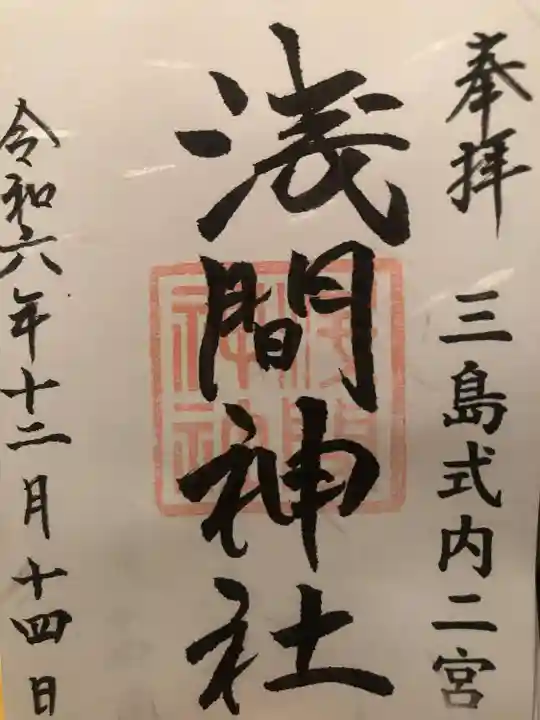 奉拝 三島式内二宮
浅間神社
令和六年十二月十四日